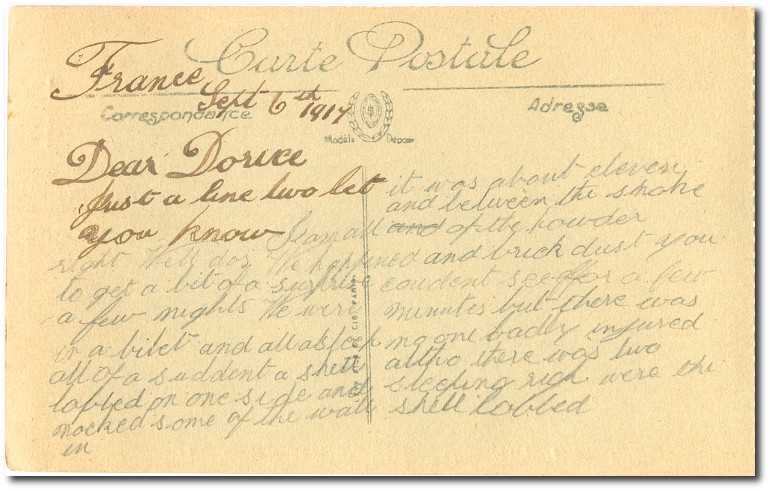 Carte Postale
France
Sept 6th 1917
Correspondance
Adresse
Modèle Depose
Dear Dorice
Just a line two let
you know I am all
right We happened
to get a bit of a surprise
a few nights We were
in a bilet and all asleep
all of a suddent a shell
lobbed on one side and
nocked some of the wall
in
it was about eleven
and between the smoke
and of the powder
and brick dust you
coudent see for a few
minutes but there was
no one badly injured
altho there was two
sleeping righ were the
shell lobbed